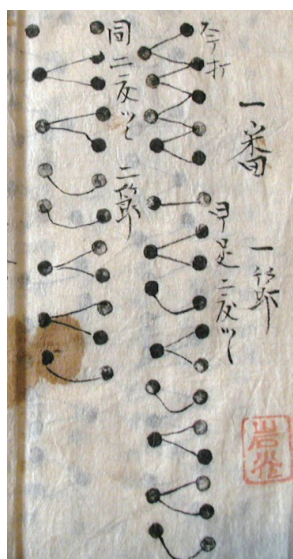 一番
一節
早足二反ツヽ
同二反ツヽ
二節